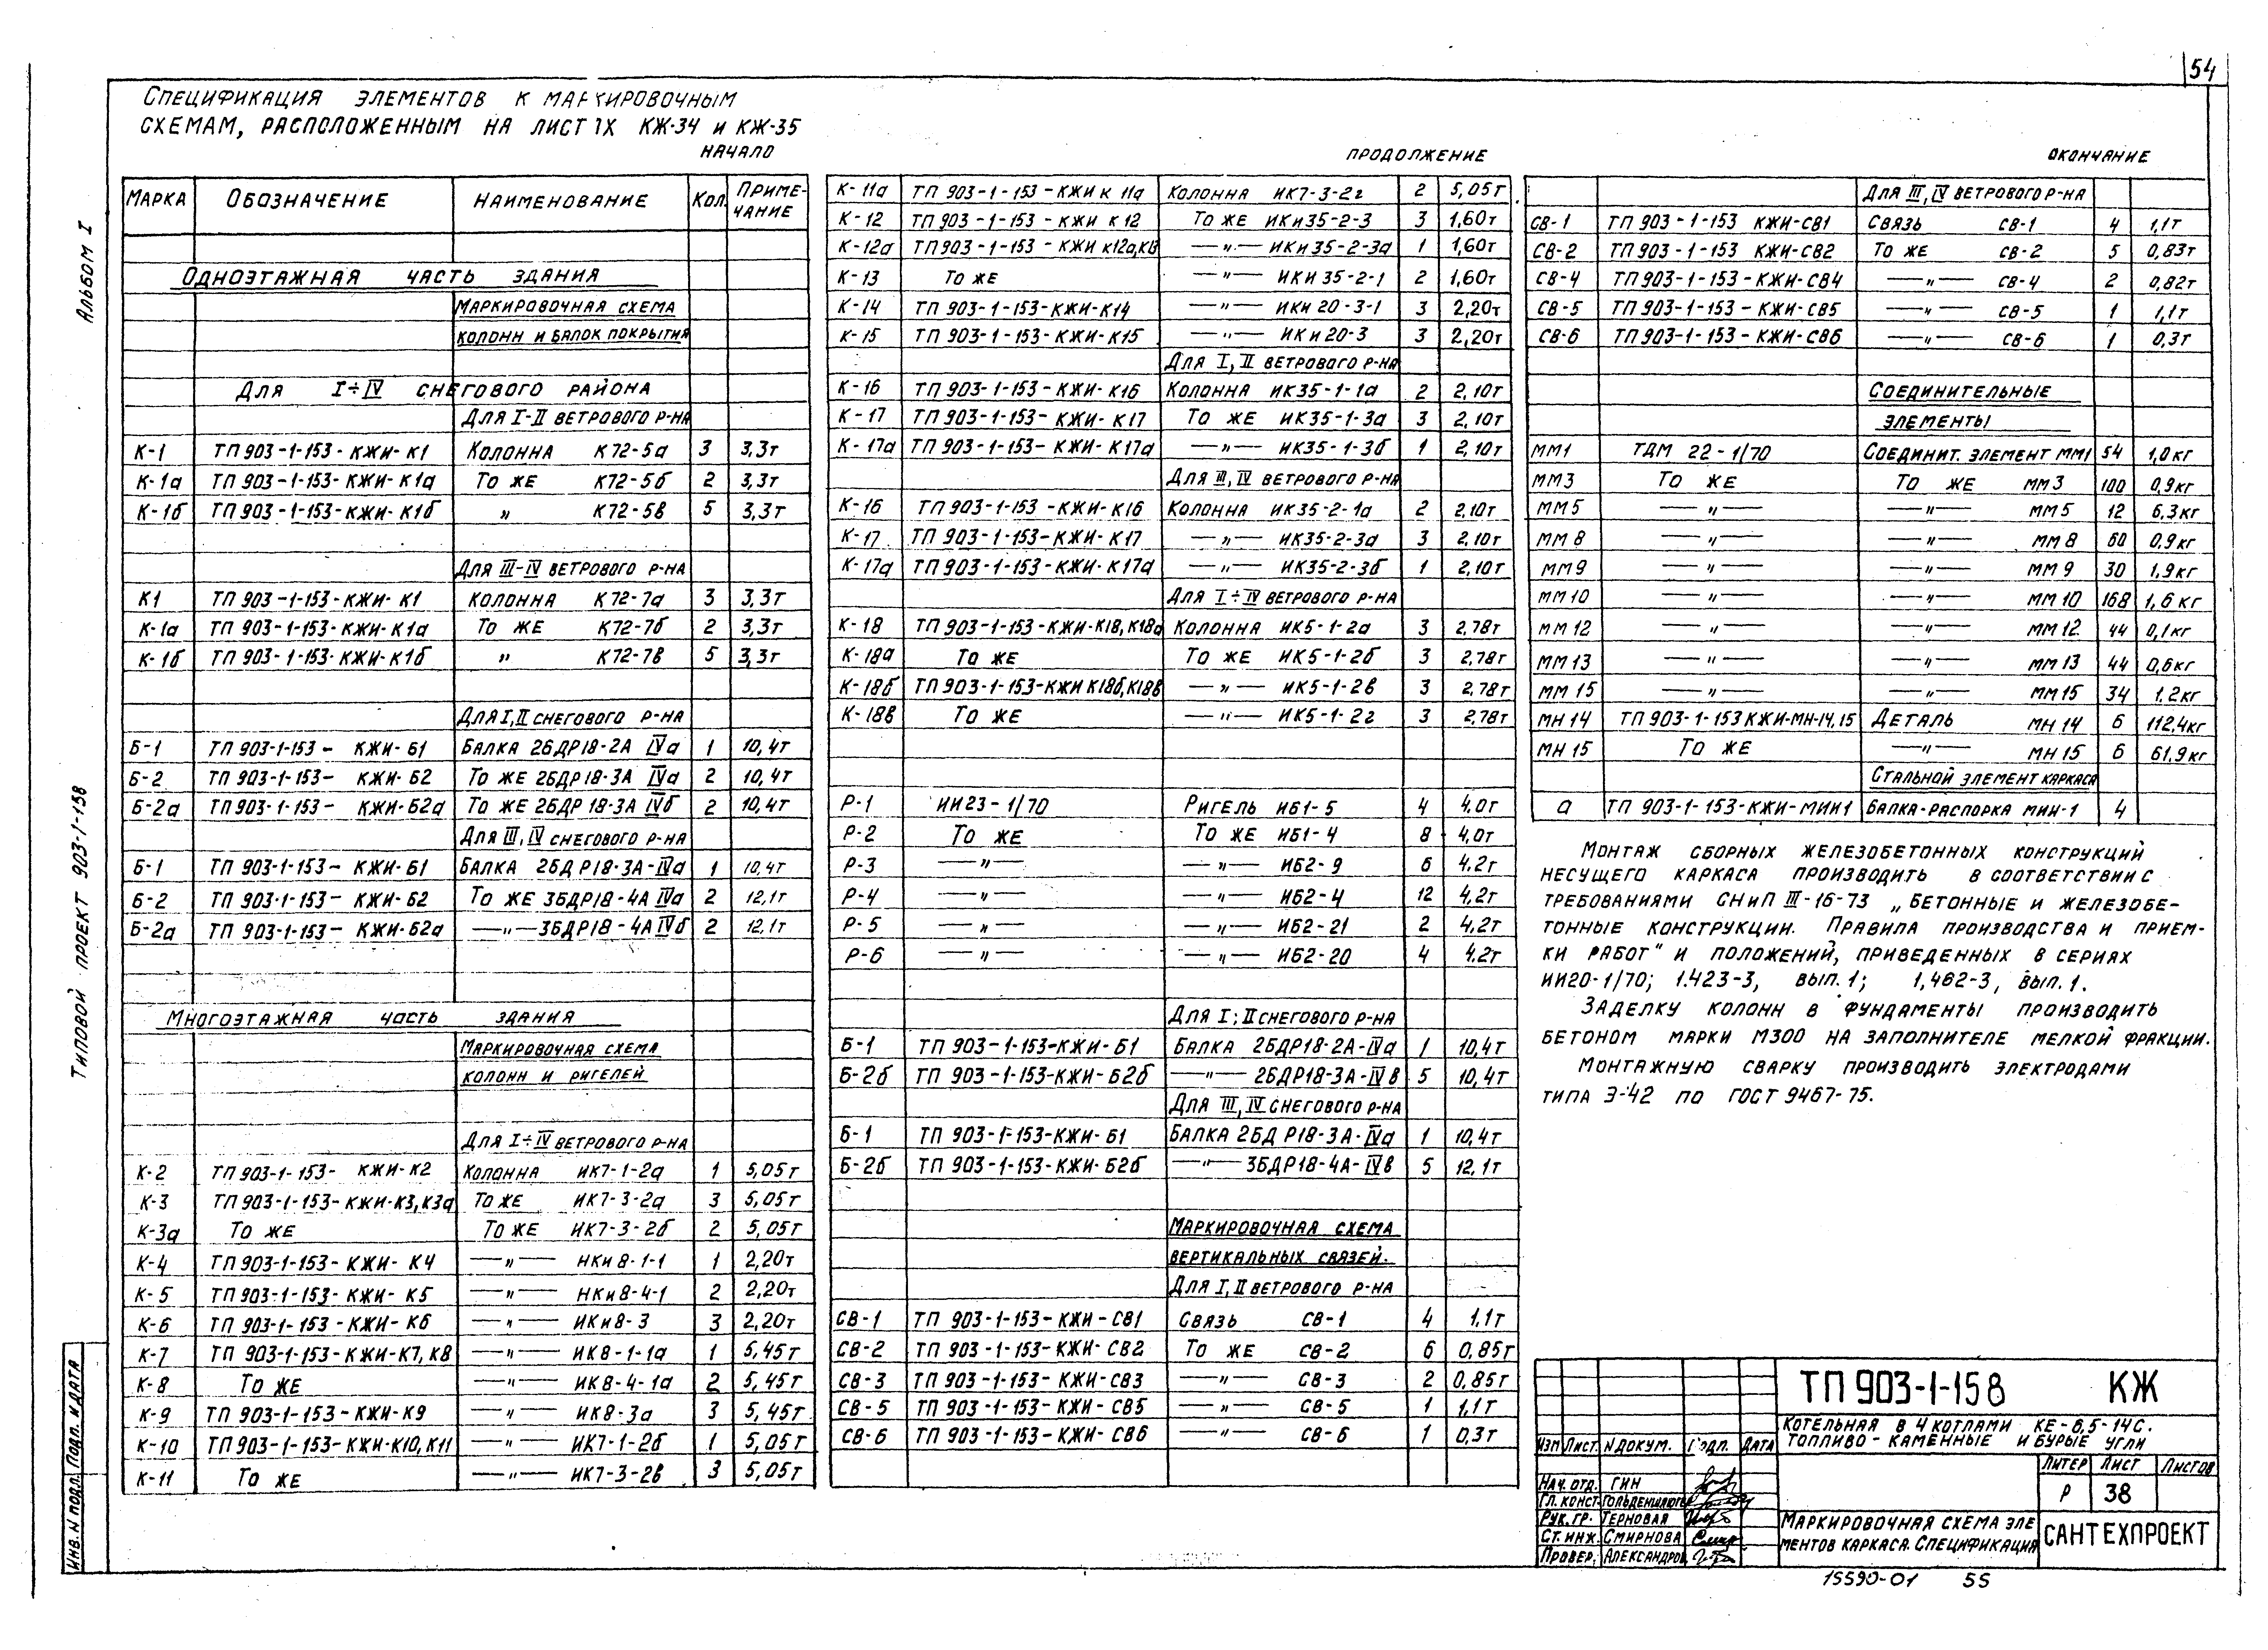 54
Спецификация элементов к маркировочным
схемам, расположенным на листах КЖ-34 и КЖ-35
начало
Марка Обозначение Наименование Кол. Примечание
Одноэтажная часть здания
Маркировочная схема
колонн и балок покрытия
Для I÷IV снегового района
Для I-II ветрового р-на
К-1 ТП 903-1-153-КЖИ-К1 Колонна К72-5а 3 3,3т
К-1а ТП 903-1-153-КЖИ-К1а То же К72-5б 2 3,3т
К-1б ТП 903-1-153-КЖИ-К1б „ К72-5в 5 3,3т
Для III-IV ветрового р-на
К1 ТП 903-1-153-КЖИ-К1 Колонна К72-7а 3 3,3т
К-1а ТП 903-1-153-КЖИ-К1а То же К72-7б 2 3,3т
К-1б ТП 903-1-153-КЖИ-К1б „ К72-7в 5 3,3т
Для I, II снегового р-на
Б-1 ТП 903-1-153-КЖИ-Б1 Балка 2БДР18-2А IVа 1 10,4т
Б-2 ТП 903-1-153-КЖИ-Б2 То же 2БДР18-3А IVа 2 10,4т
Б-2а ТП 903-1-153-КЖИ-Б2а То же 2БДР18-3А IVб 2 10,4т
Для III, IV снегового р-на
Б-1 ТП 903-1-153-КЖИ-Б1 Балка 2БДР18-3А-IVа 1 10,4т
Б-2 ТП 903-1-153-КЖИ-Б2 То же 3БДР18-4А IVа 2 12,1т
Б-2а ТП 903-1-153-КЖИ-Б2а —„— 3БДР18-4А IVб 2 12,1т
Многоэтажная часть здания
Маркировочная схема
колонн и ригелей
Для I÷IV ветрового р-на
К-2 ТП 903-1-153-КЖИ-К2 Колонна ИК7-1-2а 1 5,05т
К-3 ТП 903-1-153-КЖИ-К3,К3а То же ИК7-3-2а 3 5,05т
К-3а То же То же ИК7-3-2б 2 5,05т
К-4 ТП 903-1-153-КЖИ-К4 —„— НКи8-1-1 1 2,20т
К-5 ТП 903-1-153-КЖИ-К5 —„— НКи8-4-1 2 2,20т
К-6 ТП 903-1-153-КЖИ-К6 —„— ИКи8-3 3 2,20т
К-7 ТП 903-1-153-КЖИ-К7,К8 —„— ИК8-1-1а 1 5,45т
К-8 То же —„— ИК8-4-1а 2 5,45т
К-9 ТП 903-1-153-КЖИ-К9 —„— ИК8-3а 3 5,45т
К-10 ТП 903-1-153-КЖИ-К10,К11 —„— ИК7-1-2б 1 5,05т
К-11 То же —„— ИК7-3-2в 3 5,05т
продолжение
К-11а ТП 903-1-153-КЖИ К 11а Колонна ИК7-3-2г 2 5,05т
К-12 ТП 903-1-153-КЖИ К 12 То же ИКи35-2-3 3 1,60т
К-12а ТП 903-1-153-КЖИ К12а,К13 —„— ИКи35-2-3а 1 1,60т
К-13 То же —„— ИКи35-2-1 2 1,60т
К-14 ТП 903-1-153-КЖИ-К14 —„— ИКи20-3-1 3 2,20т
К-15 ТП 903-1-153-КЖИ-К15 —„— ИКи20-3 3 2,20т
Для I, II ветрового р-на
К-16 ТП 903-1-153-КЖИ-К16 Колонна ИК35-1-1а 2 2,10т
К-17 ТП 903-1-153-КЖИ-К17 То же ИК35-1-3а 3 2,10т
К-17а ТП 903-1-153-КЖИ-К17а —„— ИК35-1-3б 1 2,10т
Для III, IV ветрового р-на
К-16 ТП 903-1-153-КЖИ-К16 Колонна ИК35-2-1а 2 2,10т
К-17 ТП 903-1-153-КЖИ-К17 —„— ИК35-2-3а 3 2,10т
К-17а ТП 903-1-153-КЖИ-К17а —„— ИК35-2-3б 1 2,10т
Для I÷IV ветрового р-на
К-18 ТП 903-1-153-КЖИ-К18,К18а Колонна ИК5-1-2а 3 2,78т
К-18а То же То же ИК5-1-2б 3 2,78т
К-18б ТП 903-1-153-КЖИ К18б,К18в —„— ИК5-1-2в 3 2,78т
К-18в То же —„— ИК5-1-2г 3 2,78т
Р-1 ИИ23-1/70 Ригель ИБ1-5 4 4.0т
Р-2 То же То же ИБ1-4 8 4,0т
Р-3 —„— —„— ИБ2-9 6 4.2т
Р-4 —„— —„— ИБ2-4 12 4,2т
Р-5 —„— —„— ИБ2-21 2 4,2т
Р-6 —„— —„— ИБ2-20 4 4.2т
Для I; II снегового р-на
Б-1 ТП 903-1-153-КЖИ-Б1 Балка 2БДР18-2А-IVа 1 10,4т
Б-2б ТП 903-1-153-КЖИ-Б2б —„— 2БДР18-3А-IVв 5 10,4т
Для III, IV снегового р-на
Б-1 ТП 903-1-153-КЖИ-Б1 Балка 2БДР18-3А-IVа 1 10,4т
Б-2б ТП 903-1-153-КЖИ-Б2б —„— 3БДР18-4А-IVв 5 12,1т
Маркировочная схема
вертикальных связей.
Для I, II ветрового р-на
СВ-1 ТП 903-1-153-КЖИ-СВ1 Связь СВ-1 4 1,1т
СВ-2 ТП 903-1-153-КЖИ-СВ2 То же СВ-2 6 0,85т
СВ-3 ТП 903-1-153-КЖИ-СВ3 —„— СВ-3 2 0,85т
СВ-5 ТП 903-1-153-КЖИ-СВ5 —„— СВ-5 1 1,1т
СВ-6 ТП 903-1-153-КЖИ-СВ6 —„— СВ-6 1 0,3т
окончание
Для III, IV ветрового р-на
СВ-1 ТП 903-1-153 КЖИ-СВ1 Связь СВ-1 4 1,1т
СВ-2 ТП 903-1-153 КЖИ-СВ2 То же СВ-2 5 0,83т
СВ-4 ТП 903-1-153-КЖИ-СВ4 —„— СВ-4 2 0,82т
СВ-5 ТП 903-1-153-КЖИ-СВ5 —„— СВ-5 1 1,1т
СВ-6 ТП 903-1-153-КЖИ-СВ6 —„— СВ-6 1 0,3т
Соединительные
элементы
ММ1 ТДМ 22-1/70 Соединит. элемент ММ1 54 1,0кг
ММ3 То же То же ММ3 100 0,9кг
ММ5 —„— —„— ММ5 12 6,3кг
ММ8 —„— —„— ММ8 60 0,9кг
ММ9 —„— —„— ММ9 30 1,9кг
ММ10 —„— —„— ММ10 168 1,6кг
ММ12 —„— —„— ММ12 44 0,1кг
ММ13 —„— —„— ММ13 44 0,6кг
ММ15 —„— —„— ММ15 34 1.2кг
МН14 ТП 903-1-153КЖИ-МН-14,15 Деталь МН14 6 112,4кг
МН15 То же —„— МН15 6 61,9кг
Стальной элемент каркаса
а ТП 903-1-153-КЖИ-МИИ1 Балка-распорка МИИ-1 4
Монтаж сборных железобетонных конструкций
несущего каркаса производить в соответствии с
требованиями СНиП III-16-73 „Бетонные и железобе-
тонные конструкции. Правила производства и прием-
ки работ" и положений, приведенных в сериях
ИИ20-1/70; 1.423-3, вып. 1; 1,462-3, вып. 1.
Заделку колонн в фундаменты производить
бетоном марки М300 на заполнителе мелкой фракции.
Монтажную сварку производить электродами
типа Э-42 по ГОСТ 9467-75.
ТП 903-1-158 КЖ
Котельная в 4 котлами КЕ-6,5-14С.
Топливо-каменные и бурые угли
Изм Лист. N докум. Подп. Дата
Литер Лист Листов
Р 38
Нач. отд. Гин
Гл. конст.
Рук. гр. Терновая
Ст. инж. Смирнова
Провер. Александров
Маркировочная схема эле
ментов каркаса. Спецификация
САНТЕХПРОЕКТ
15590-01 55
Альбом I
Типовой проект 903-1-158
Инв. N подл. Подп. и дата